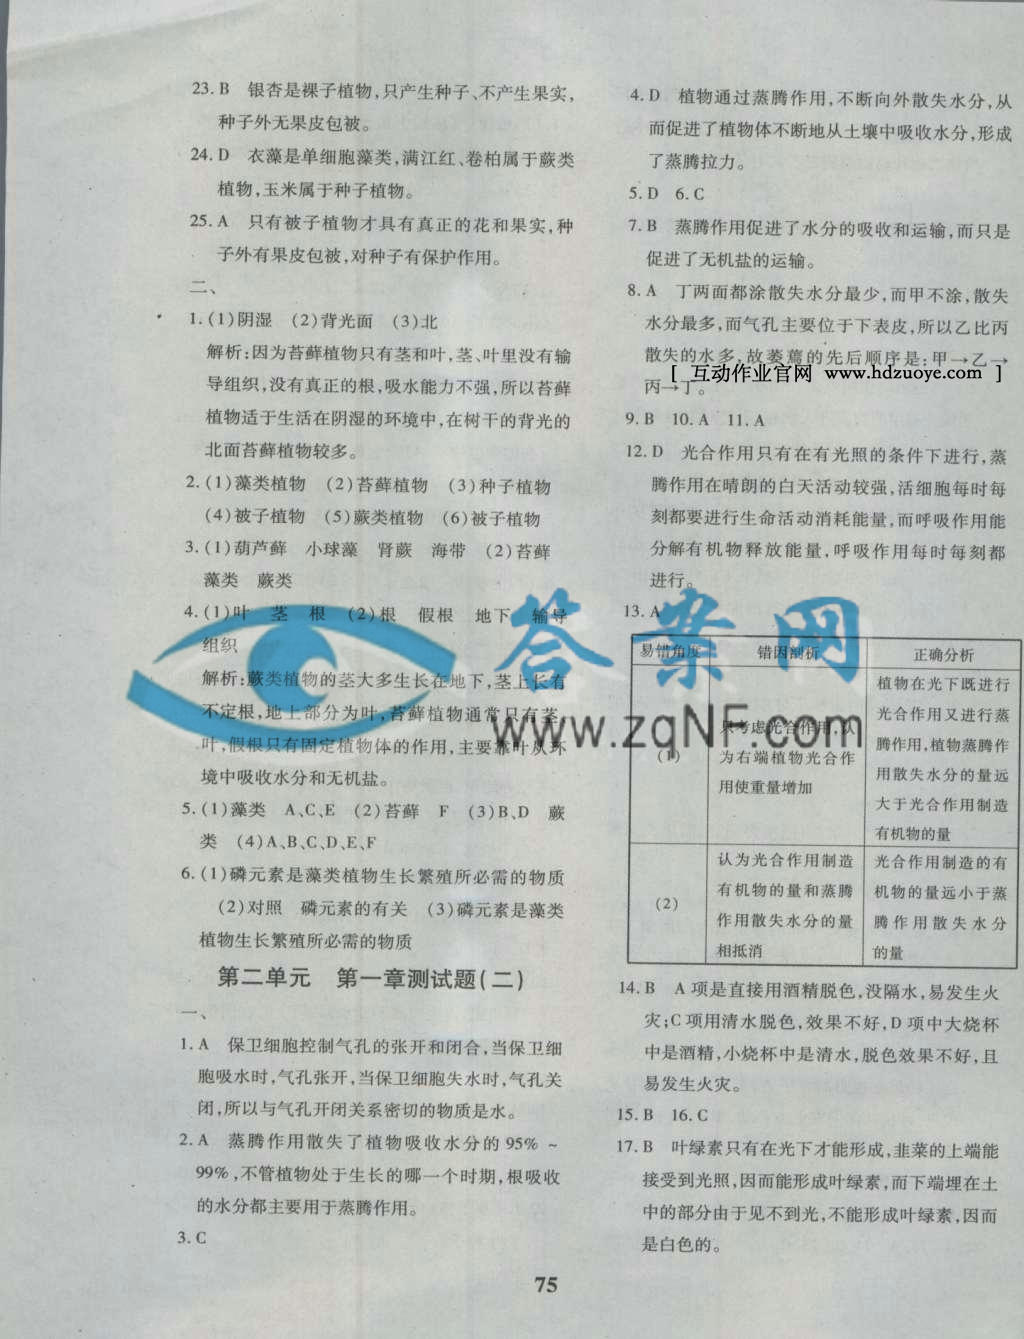 23. B 银杏是裸子植物,只产生种子、不产生果实,
种子外无果皮包被。
24. D 衣藻是单细胞藻类,满江红、卷柏属于蕨类
植物,玉米属于种子植物。
25. A 只有被子植物才具有真正的花和果实,种
子外有果皮包被,对种子有保护作用。
二、
1. (1)阴湿 (2)背光面 (3)北
解析:因为苔藓植物只有茎和叶,茎、叶里没有输
导组织,没有真正的根,吸水能力不强,所以苔藓
植物适于生活在阴湿的环境中,在树干的背光的
北面苔藓植物较多。
2. (1)藻类植物 (2)苔藓植物 (3)种子植物
(4)被子植物 (5)蕨类植物 (6)被子植物
3. (1)葫芦藓 小球藻 肾蕨 海带 (2)苔藓
藻类 蕨类
4. (1)叶 茎 根 (2)根 假根 地下 输导
组织
解析:蕨类植物的茎大多生长在地下,茎上长有
不定根,地上部分为叶,苔藓植物通常只有茎、
叶,假根只有固定植物体的作用,主要靠叶从环
境中吸收水分和无机盐。
5. (1)藻类 A、C、E (2)苔藓 F (3)B、D 蕨
类 (4)A、B、C、D、E、F
6. (1)磷元素是藻类植物生长繁殖所必需的物质
(2)对照 磷元素的有关 (3)磷元素是藻类
植物生长繁殖所必需的物质
第二单元 第一章测试题(二)
一、
1. A 保卫细胞控制气孔的张开和闭合,当保卫细
胞吸水时,气孔张开,当保卫细胞失水时,气孔关
闭,所以与气孔开闭关系密切的物质是水。
2. A 蒸腾作用散失了植物吸收水分的95% ~
99%,不管植物处于生长的哪一个时期,根吸收
的水分都主要用于蒸腾作用。
3. C
4. D 植物通过蒸腾作用,不断向外散失水分,从
而促进了植物体不断地从土壤中吸收水分,形成
了蒸腾拉力。
5. D 6. C
7. B 蒸腾作用促进了水分的吸收和运输,而只是
促进了无机盐的运输。
8. A 丁两面都涂散失水分最少,而甲不涂,散失
水分最多,而气孔主要位于下表皮,所以乙比丙
散失的水多,故萎蔫的先后顺序是:甲→乙→
[ 互动作业官网 www.hdzuoye.com ]
丙→丁。
9. B 10. A 11. A
12. D 光合作用只有在有光照的条件下进行,蒸
腾作用在晴朗的白天活动较强,活细胞每时每
刻都要进行生命活动消耗能量,而呼吸作用能
分解有机物释放能量,呼吸作用每时每刻都
进行。
13. A
易错角度 错因剖析 正确分析
(1)
只考虑光合作用,认
为右端植物光合作
用使重量增加
植物在光下既进行
光合作用又进行蒸
腾作用,植物蒸腾作
用散失水分的量远
大于光合作用制造
有机物的量
(2)
认为光合作用制造
有机物的量和蒸腾
作用散失水分的量
相抵消
光合作用制造的有
机物的量远小于蒸
腾作用散失水分
的量
14. B A项是直接用酒精脱色,没隔水,易发生火
灾;C项用清水脱色,效果不好,D项中大烧杯
中是酒精,小烧杯中是清水,脱色效果不好,且
易发生火灾。
15. B 16. C
17. B 叶绿素只有在光下才能形成,韭菜的上端能
接受到光照,因而能形成叶绿素,而下端埋在土
中的部分由于见不到光,不能形成叶绿素,因而
是白色的。
答案网
www.zqNF.com
75